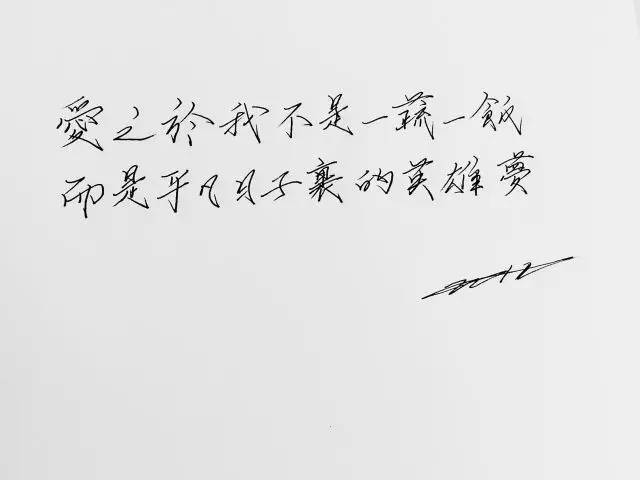 愛之於我不是一蔬一飯
而是平凡日子裏的英雄夢